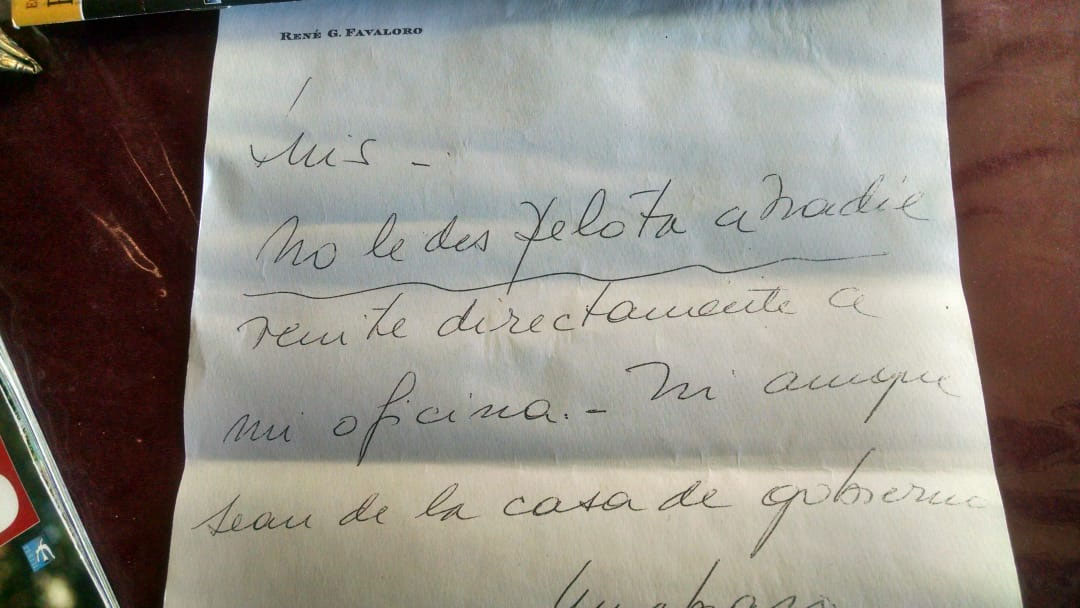 RENÉ G. FAVALORO
Luis -
No le des pelota a nadie
venite directamente a
mi oficina.- Ni aunque
sean de la casa de gobierno
Un abrazo